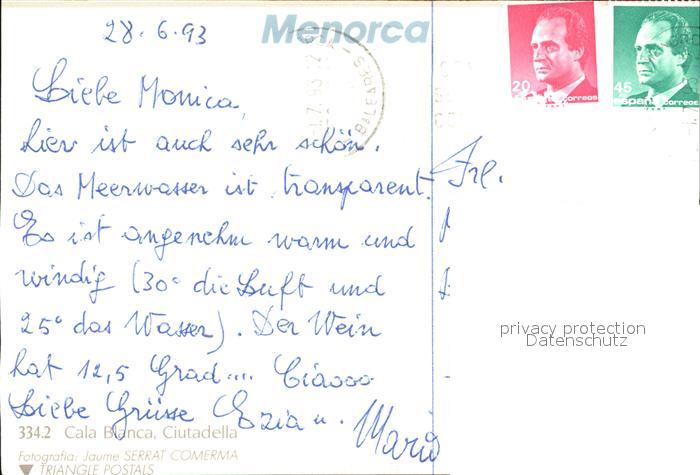 28.6.93
Menorca
Liebe Monica,
hier ist auch sehr schön.
Das Meerwasser ist transparent.
Es ist angenehm warm und
windig (30° die Luft und
25° das Wasser). Der Wein
hat 12,5 Grad.... Ciaooo
Liebe Grüsse Ezia u. Mario
334.2 Cala Blanca, Ciutadella
Fotografia: Jaume SERRAT COMERMA
TRIANGLE POSTALS
BALEARES
20
españa correos
45
españa correos
Frl.
privacy protection
Datenschutz